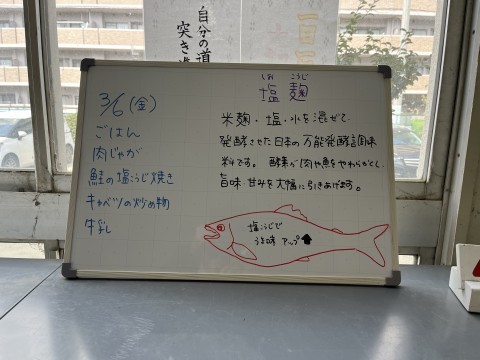 自分の道
突き進
3/6(金)
ごはん
肉じゃが
鮭の塩こうじ焼き
キャベツの炒め物
牛乳
しお こうじ
塩 麹
米麹・塩・水を混ぜて、
発酵させた日本の万能発酵調味
料です。酵素が肉や魚をやわらかくし、
旨味・甘みを大幅に引きあげます。
塩こうじで
うま味 アップ⬆